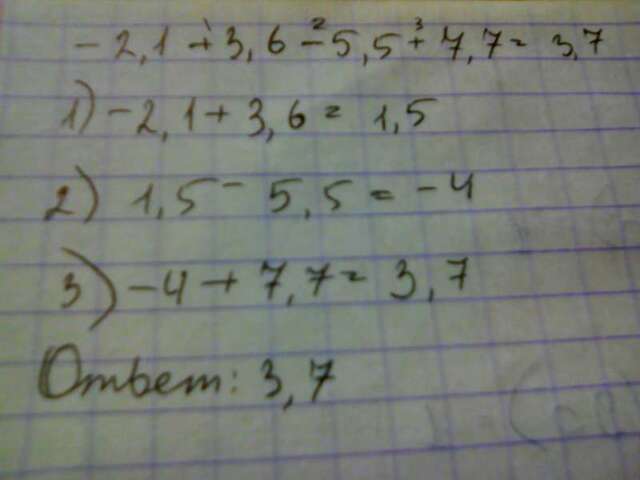 -2,1 +¹ 3,6 -² 5,5 +³ 7,7 = 3,7
1) -2,1 + 3,6 = 1,5
2) 1,5 - 5,5 = -4
3) -4 + 7,7 = 3,7
Ответ: 3,7